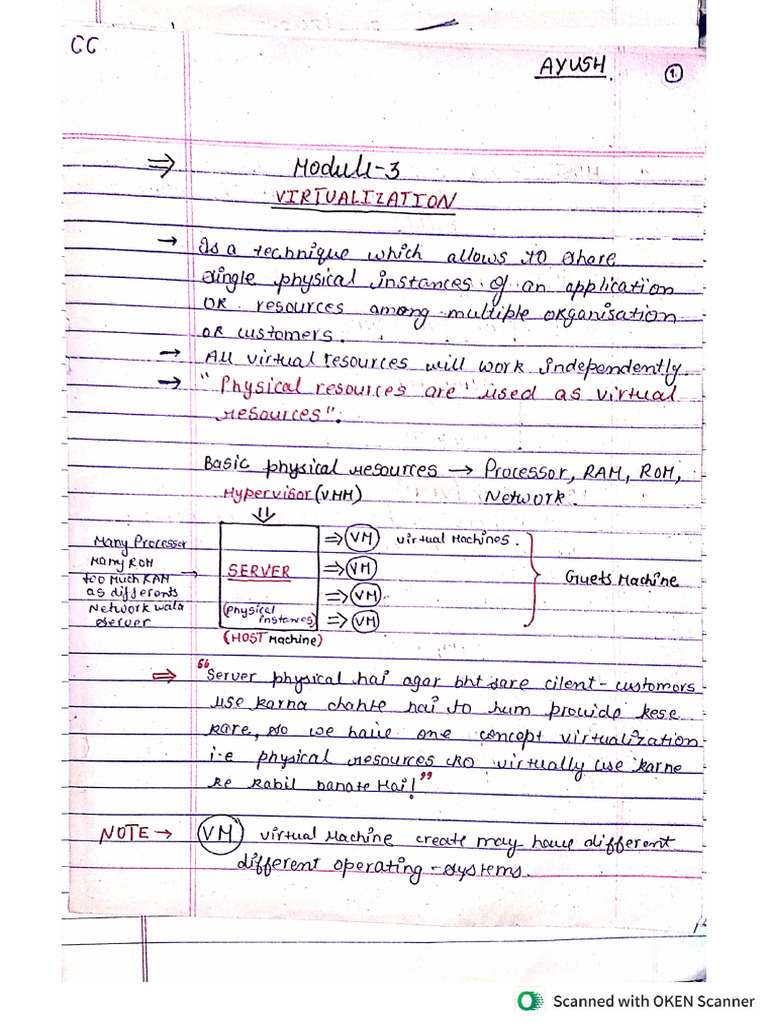 CC
AYUSH
1.
⇒ Module-3
VIRTUALIZATION
→ Is a technique which allows to share
single physical instances of an application
OR resources among multiple organisation
OR customers.
→ All virtual resources will work independently.
→ "Physical resources are "used as virtual
resources".
Basic physical resources → Processor, RAM, ROM,
Hypervisor (VMM) Network.
⇓
Many Processor
Many ROM
too Much RAM →
as differents
Network wala
server
SERVER
(physical
instances)
(HOST Machine)
⇒ VM Virtual Machines.
⇒ VM
⇒ VM
⇒ VM
Guets Machine
⇒ "Server physical hai agar bht sare cilent-customors
use karna chahte hai to hum provide kese
kare, so we have one concept virtualization
i.e physical resources ko virtually use karne
ke kabil banate Hai!"
NOTE → VM virtual Machine create may have different
different operating-systems.
Scanned with OKEN Scanner